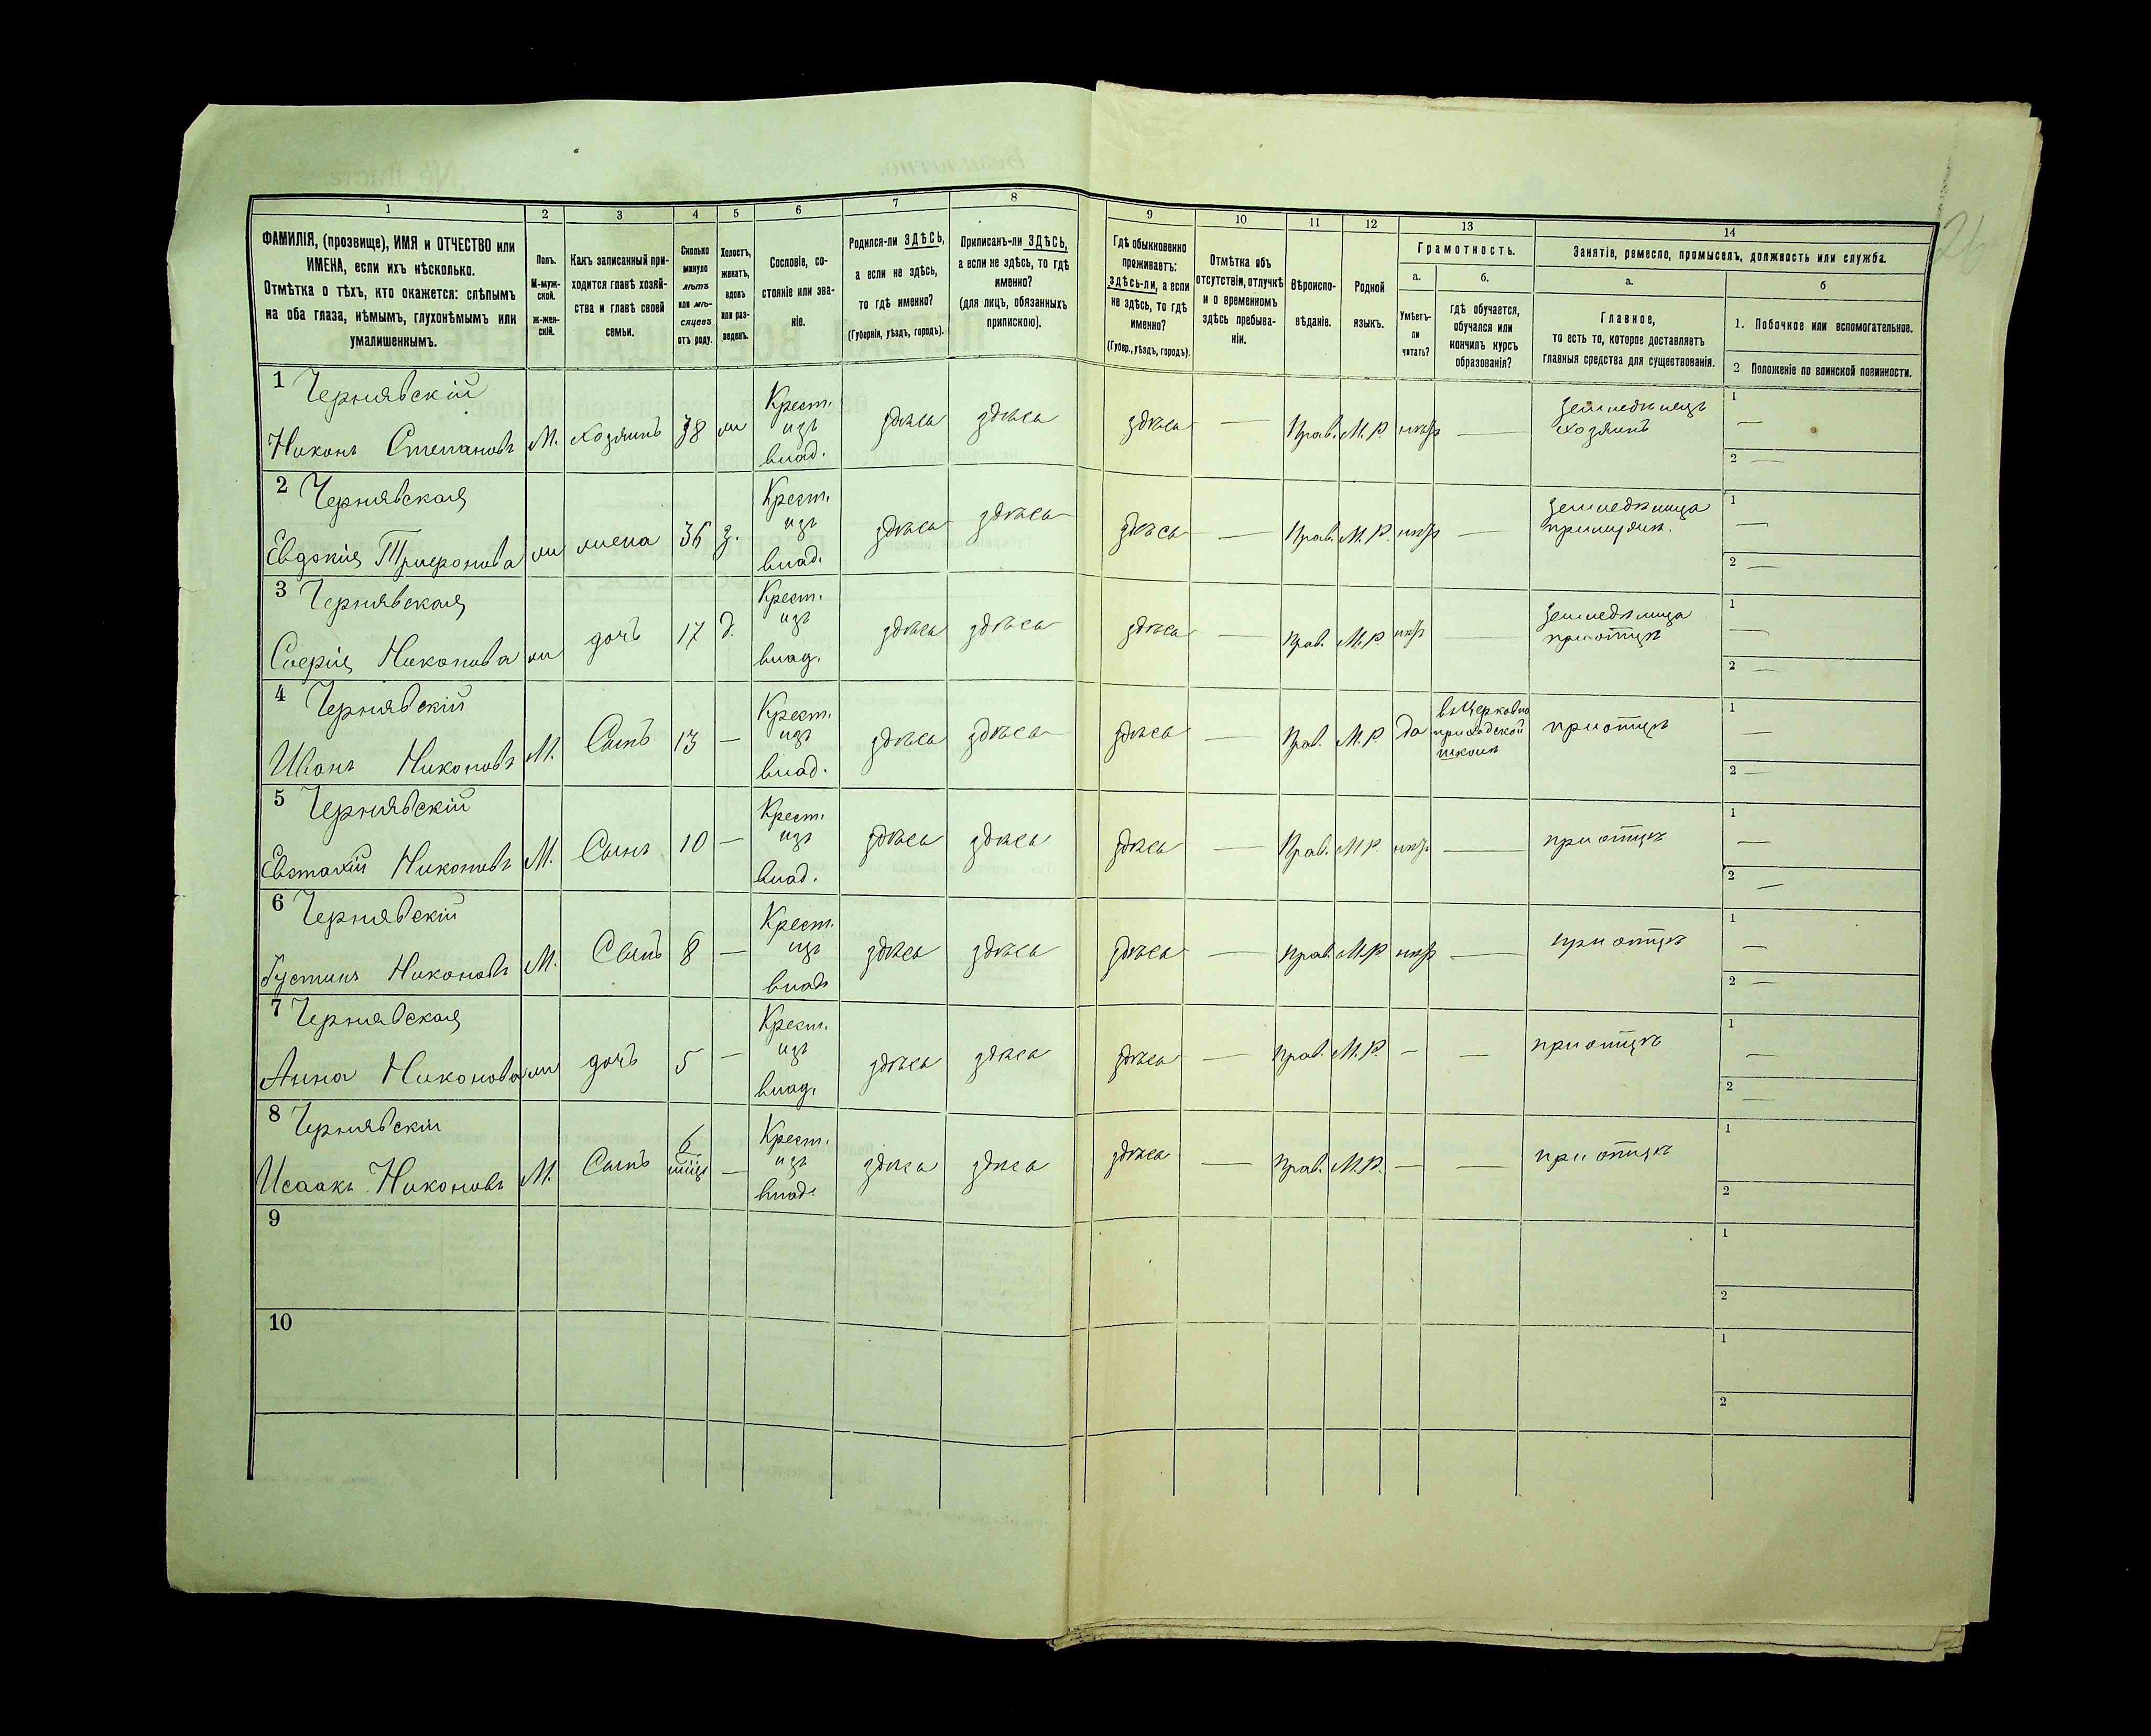 26
1 2 3 4 5 6 7 8 9 10 11 12 13 14
ФАМИЛІЯ, (прозвище), ИМЯ и ОТЧЕСТВО или
ИМЕНА, если ихъ нѣсколько.
Отмѣтка о тѣхъ, кто окажется: слѣпымъ
на оба глаза, нѣмымъ, глухонѣмымъ или
умалишеннымъ.
Полъ.
М-муж-
ской.
ж-жен-
скій.
Какъ записанный при-
ходится главѣ хозяй-
ства и главѣ своей
семьи.
Сколько
минуло
лѣтъ
или мѣ-
сяцевъ
отъ роду.
Холостъ,
женатъ,
вдовъ
или раз-
веденъ.
Сословіе, со-
стояніе или зва-
ніе.
Родился-ли ЗДѢСЬ,
а если не здѣсь,
то гдѣ именно?
(Губернія, уѣздъ, городъ).
Приписанъ-ли ЗДѢСЬ,
а если не здѣсь, то гдѣ
именно?
(для лицъ, обязанныхъ
припискою).
Гдѣ обыкновенно
проживаетъ:
здѣсь-ли, а если
не здѣсь, то гдѣ
именно?
(Губер., уѣздъ, городъ).
Отмѣтка объ
отсутствіи, отлучкѣ
и о временномъ
здѣсь пребыва-
ніи.
Вѣроиспо-
вѣданіе.
Родной
языкъ.
Грамотность.
а.
Умѣетъ-
ли
читать?
б.
гдѣ обучается,
обучался или
кончилъ курсъ
образованія?
Занятіе, ремесло, промыселъ, должность или служба.
а.
Главное,
то есть то, которое доставляетъ
главныя средства для существованія.
б
1. Побочное или вспомогательное.
2 Положеніе по воинской повинности.
1 Чернявскій
Никонъ Степановъ М. хозяинъ 38 ж Крест. изъ влад. здѣсь здѣсь здѣсь — Прав. М.Р. нѣтъ — Земледѣлецъ хозяинъ 1 — 2 —
2 Чернявская
Евдокія Трифонова ж жена 36 з. Крест. изъ влад. здѣсь здѣсь здѣсь — Прав. М.Р. нѣтъ — Земледѣлица 1 — 2 —
3 Чернявская
Софія Никонова ж дочь 17 д. Крест. изъ влад. здѣсь здѣсь здѣсь — Прав. М.Р. нѣтъ — Земледѣлица при отцѣ 1 — 2 —
4 Чернявскій
Иванъ Никоновъ М. Сынъ 13 — Крест. изъ влад. здѣсь здѣсь здѣсь — Прав. М.Р. да въ Церковно приходской школѣ при отцѣ 1 — 2 —
5 Чернявскій
Евстахій Никоновъ М. Сынъ 10 — Крест. изъ влад. здѣсь здѣсь здѣсь — Прав. М.Р. нѣтъ — при отцѣ 1 — 2 —
6 Чернявскій
Густинъ Никоновъ М. Сынъ 8 — Крест. изъ влад. здѣсь здѣсь здѣсь — Прав. М.Р. нѣтъ — при отцѣ 1 — 2 —
7 Чернявская
Анна Никонова ж дочь 5 — Крест. изъ влад. здѣсь здѣсь здѣсь — Прав. М.Р. — — при отцѣ 1 — 2 —
8 Чернявскій
Исаакъ Никоновъ М. Сынъ 6 — Крест. изъ влад. здѣсь здѣсь здѣсь — Прав. М.Р. — — при отцѣ 1 2
9 1 2
10 1 2